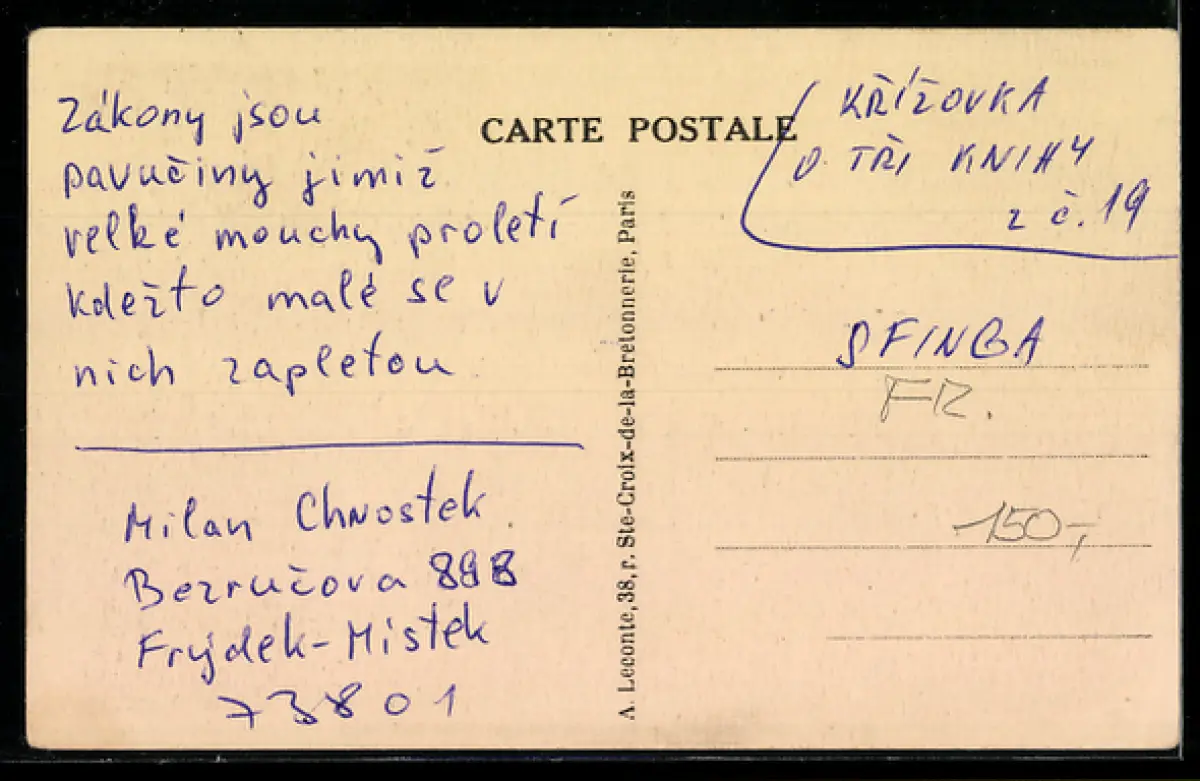 Zákony jsou
pavučiny jimiž
velké mouchy proletí
kdežto malé se v
nich zapletou
Milan Chvostek
Bezručova 898
Frýdek-Místek
73801
CARTE POSTALE
A. Leconte, 38, r. Ste-Croix-de-la-Bretonnerie, Paris
KŘÍŽOVKA
O TŘI KNIHY
z č. 19
SFINGA
FR.
150,-